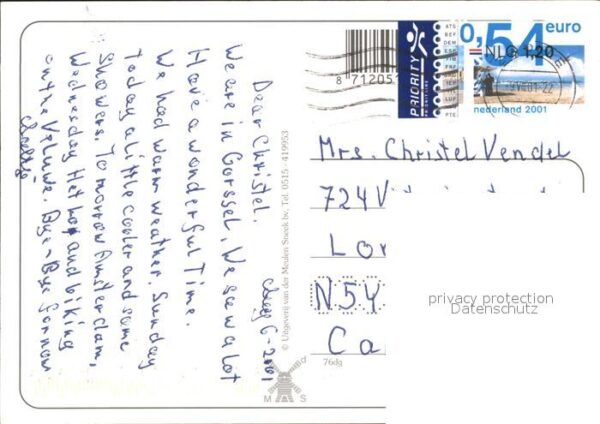 Dear Christel.
Aug 6-2001
We are in Gorssel. We saw a lot
Have a wonderful Time.
We had warm weather. Sunday
Today a little cooler and some
Showers. Tomorrow Amsterdam,
Wednesday Het Loo and biking
on the Veluwe. Bye-Bye for now
© Uitgeverij van der Meulen Sneek bv, Tel. 0515 - 419953
8 71205
PRIORITY
PRIORITAIRE
0,54 euro
NLG 1,20
nederland 2001
Mrs. Christel Vendel
724 V
Lon
N5Y
Ca
76dg
M S
privacy protection
Datenschutz